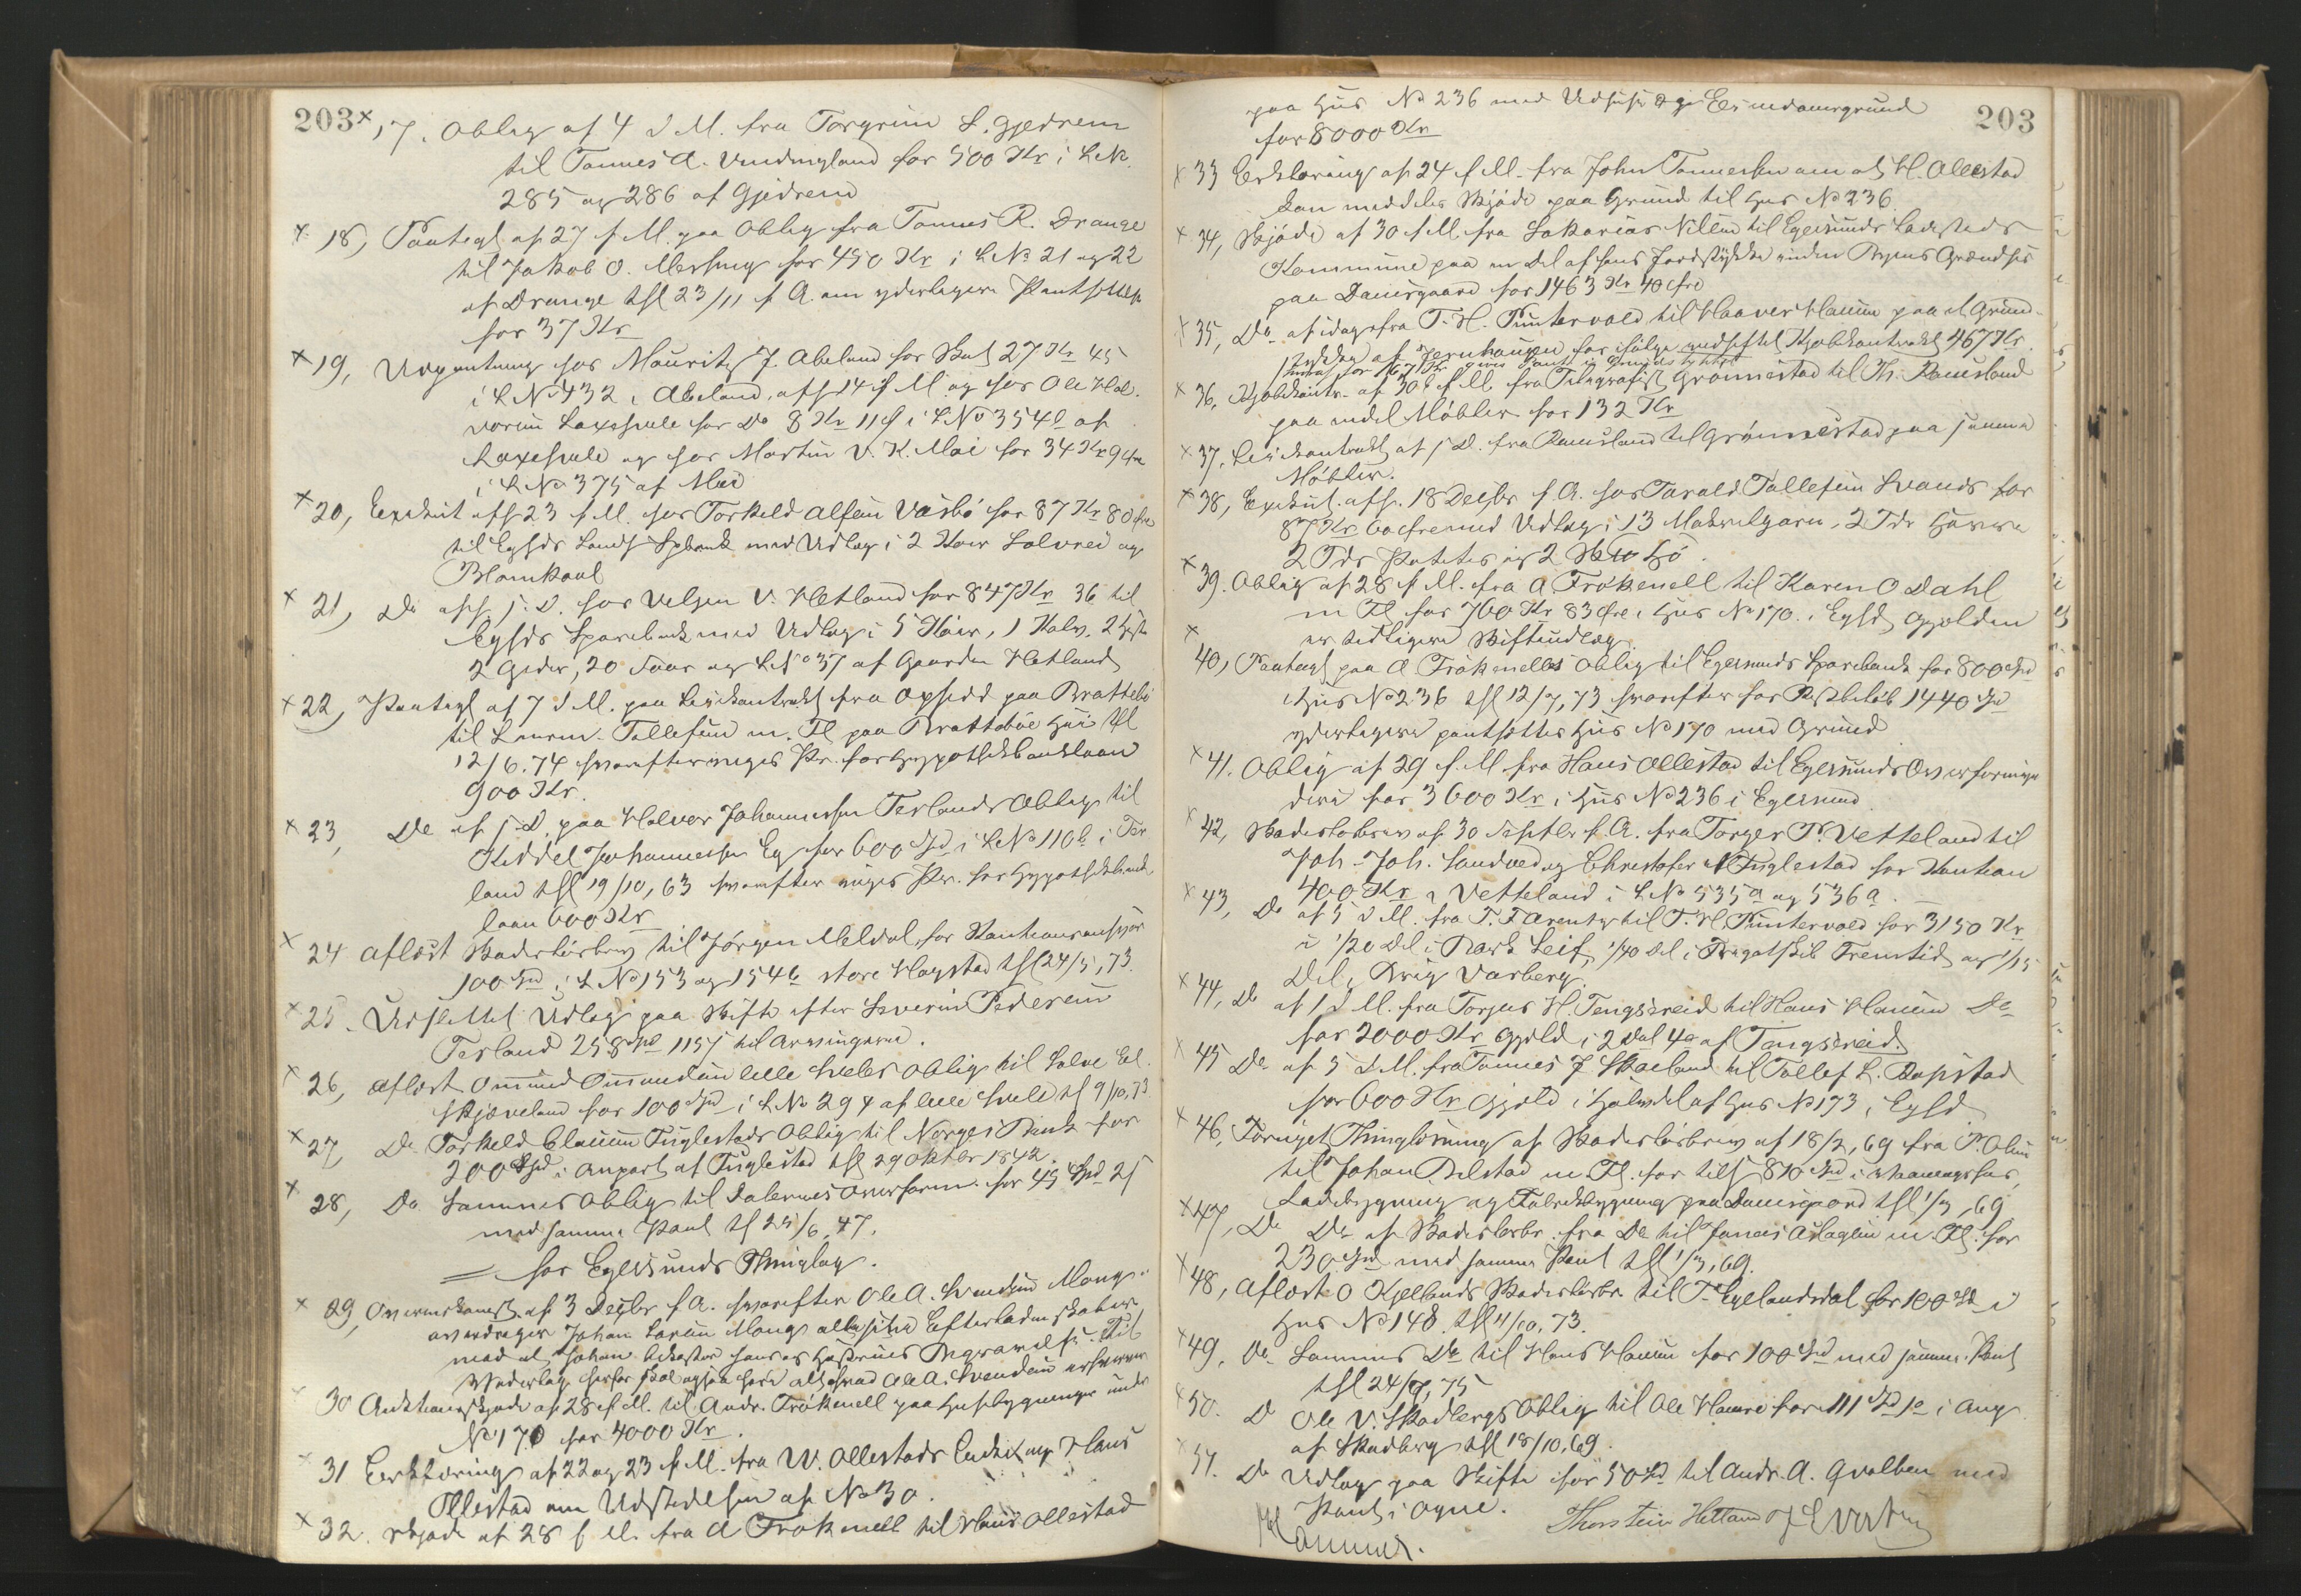 203
× 17. Oblig af 4 d M. fra Torgrim L. Gjedrem
til Tønnes A. Vindingland for 500 Kr i L.N.
285 og 286 af Gjedrem
× 18, Paategn af 27 f M. paa Oblig fra Tønnes R. Drange
til Jakob O. Mersing for 450 Kr i L No 21 og 22
af Drange thl 23/11 f A. om yderligere Pantsættelse
for 37 Kr
× 19, Udpantning hos Mauritz J. Abeland for Skat 27 Kr 45
i L No 432, Abeland, afh 14 f M og hos Ole Hal-
vorsen Laxesvele for Do 8 Kr 11 Ø i L No 354 b af
Laxesvele og hos Martin V. K. Moi for 34 Kr 94
i L No 375 af Moi
× 20, Exekut afh 23 f M. hos Torkeld Alfsen Vasbø for 87 Kr 80 Øre
til Egsds Lands Spbank med Udlæg i 2 Køer Solvrei og
Blomkoal
× 21, Do afh s. D. hos Velgen V. Hetland for 847 Kr 36 til
Egsds Sparebank med Udlæg i 5 Køer, 1 Kalv, 2 Heste
2 Geder, 20 Faar og L No 37 af Gaarden Hetland
× 22, Paategn af 7 d M. paa Leiekontrakt fra Opsedd paa Brattebø
til Lauren. Tollefsen m. Fl paa Brattebøe Hus thl
12/6.74 hvorefter viges Pr. for Hypothekbanklaan
900 Kr.
× 23, Do af s. D. paa Halvor Johannessen Terlands Oblig til
Kiddel Johannessen Eg for 600 Spd i L No 110 b i Ter
land thl 19/10, 63 hvorefter viges Pr. for Hypothekbank
laan 600 Kr
× 24 Aflæst Skadesløsbrev til Jørgen Meldal for Kautionsansvar
100 Spd i L No 153 og 154 b store Haystad thl 24/5, 73.
× 25. Udslettet Udlæg paa Skifte efter Severin Pedersen
Terland 258 Spd 115 s til Arvingerne.
× 26, Aflæst Omund Omundsen lille Sveles Oblig til Salve El.
Skjæveland for 100 Spd i L No 294 af lille Svele thl 9/10, 73
× 27, Do Torkeld Clausen Fuglestads Oblig til Norges Bank for
200 Spd i Anpart af Fuglestad thl 29 Oktbr 1842.
× 28, Do Sammes Oblig til Dalernes Overform. for 45 Spd 2 s
med samme Pant thl 25/6, 47.
= for Egersunds Thinglag.
× 29, Overenskomst af 3 Decbr f A. hvorefter Ole A. Svendsen Mong
overdrager Johan Larsen Mong alle sine Efterladenskaber
mod at Johan bekoster hans og Hustrues Begravelse. Til
Vederlag herfor skal ogsaa høre alt hvad Ole A. Svendsen erhverver
30 Auktionsskjøde af 28 f M. til Andr. Frøkenell paa Husebygninger under
No 170 for 4000 Kr.
× 31 Erklæring af 22 og 23 f M. fra W. Ollestads Enke og Hans
Ollestad om Udstedelsen af No 30.
× 32. Skjøde af 28 f M. fra A Frøkenell til Hans Ollestad
203
paa Hus No 236 med Udhuse og Eiendomsgrund
for 8000 Kr
× 33 Erklæring af 24 f M. fra John Tønnessen om at H. Ollestad
kan meddeles Skjøde paa Grund til Hus No 236.
× 34, Skjøde af 30 f M. fra Sakarias Nilsen til Egersunds Ladesteds
Kommune paa en Del af hans Jordstykke inden Byens Grændse
paa Damsgaard for 1463 Kr 40 Øre
× 35, Do af idag fra T. H. Puntervold til Haaver Hansen paa et Grund-
stykke af Jernhaugen for ifølge vedheftet Kjøbekontrakt 467 Kr
× 36, Kjøbekontr. af 30 f M. fra Telegrafist Grønnestad til Th. Rausland
paa endel Møbler for 132 Kr
× 37. Leiekontrakt af s D. fra Rausland til Grønnestad paa samme
Møbler.
× 38, Exekut. afh. 18 Decbr f A. hos Tarald Tollefsen Svaads for
87 Kr 60 Øre med Udlæg i 13 Makrelgarn, 2 Tdr Havre
2 Tdr Poteter og 2 Hø.
× 39. Oblig af 28 f M. fra A Frøkenell til Karen O Dahl
m Fl for 760 Kr 83 Øre i Hus No 170. i Egsd, Gjælden
er tidligere Skifteudlæg.
× 40, Paategn paa A Frøkenells Oblig til Egersunds Sparebank for 800 Spd
i Hus No 236 thl 12/7, 73 hvorefter for Restbeløb 1440 Spd
yderligere pantsættes Hus No 170 med Grund
× 41. Oblig af 29 f M fra Hans Ollestad til Egersunds Overformyn
deri for 3600 Kr i Hus No 236 i Egersund
× 42, Skadesløsbrev af 30 Septbr f. A. fra Torger P. Vetteland til
Joh. Joh. Sandved og Christofer Fuglestad for Kaution
400 Kr i Vetteland i L No 535 a og 536 a. —
× 43, Do af 5 d M. fra T. F Arentz til T. H. Puntervold for 3150 Kr
i 1/20 Del i Bark Leif, 1/40 Del i Fregatskib Fremtid og 1/15
Del i Brig Varberg.
× 44, Do af 1 d M. fra Torjus H. Tengsereid til Hans Hansen Do
for 2000 Kr Gjæld i 2 Dal 4 a af Tengsereid.
× 45 Do af 5 d M. fra Tønnes J Skaeland til Tollef L. Rapstad
for 600 Kr Gjæld i Halvdel af Hus No 173, Egsd
× 46, Fornyet Thinglæsning af Skadesløsbrev af 18/2, 69 fra P. Olsen
til Johan Bilstad m Fl. for tils 810 Spd i Vaaningshus,
Ladebygning og Fabrikbygning paa Damsgaard thl 1/3, 69
× 47, Do Do af Skadesløsbr. fra Do til Jonas Aslagsen m. Fl. for
230 Spd med samme Pant thl 1/3, 69.
× 48, Aflæst O Kjellands Skadesløsbr. til T. Egelandsdal for 100 Spd i
Hus No 148. thl 4/10, 73.
× 49, Do Sammes Do til Hans Hansen for 100 Spd med samme Pant
thl 24/9, 75
× 50. Do Ole V. Skadbergs Oblig til Ole Hamre for 111 Spd i Aug
af Skadberg thl 18/10, 69.
× 51. Do Udlæg paa Skifte for 50 Spd til Andr. A. Qvalben med
Pant i Ogne.
Thorstein Hetland